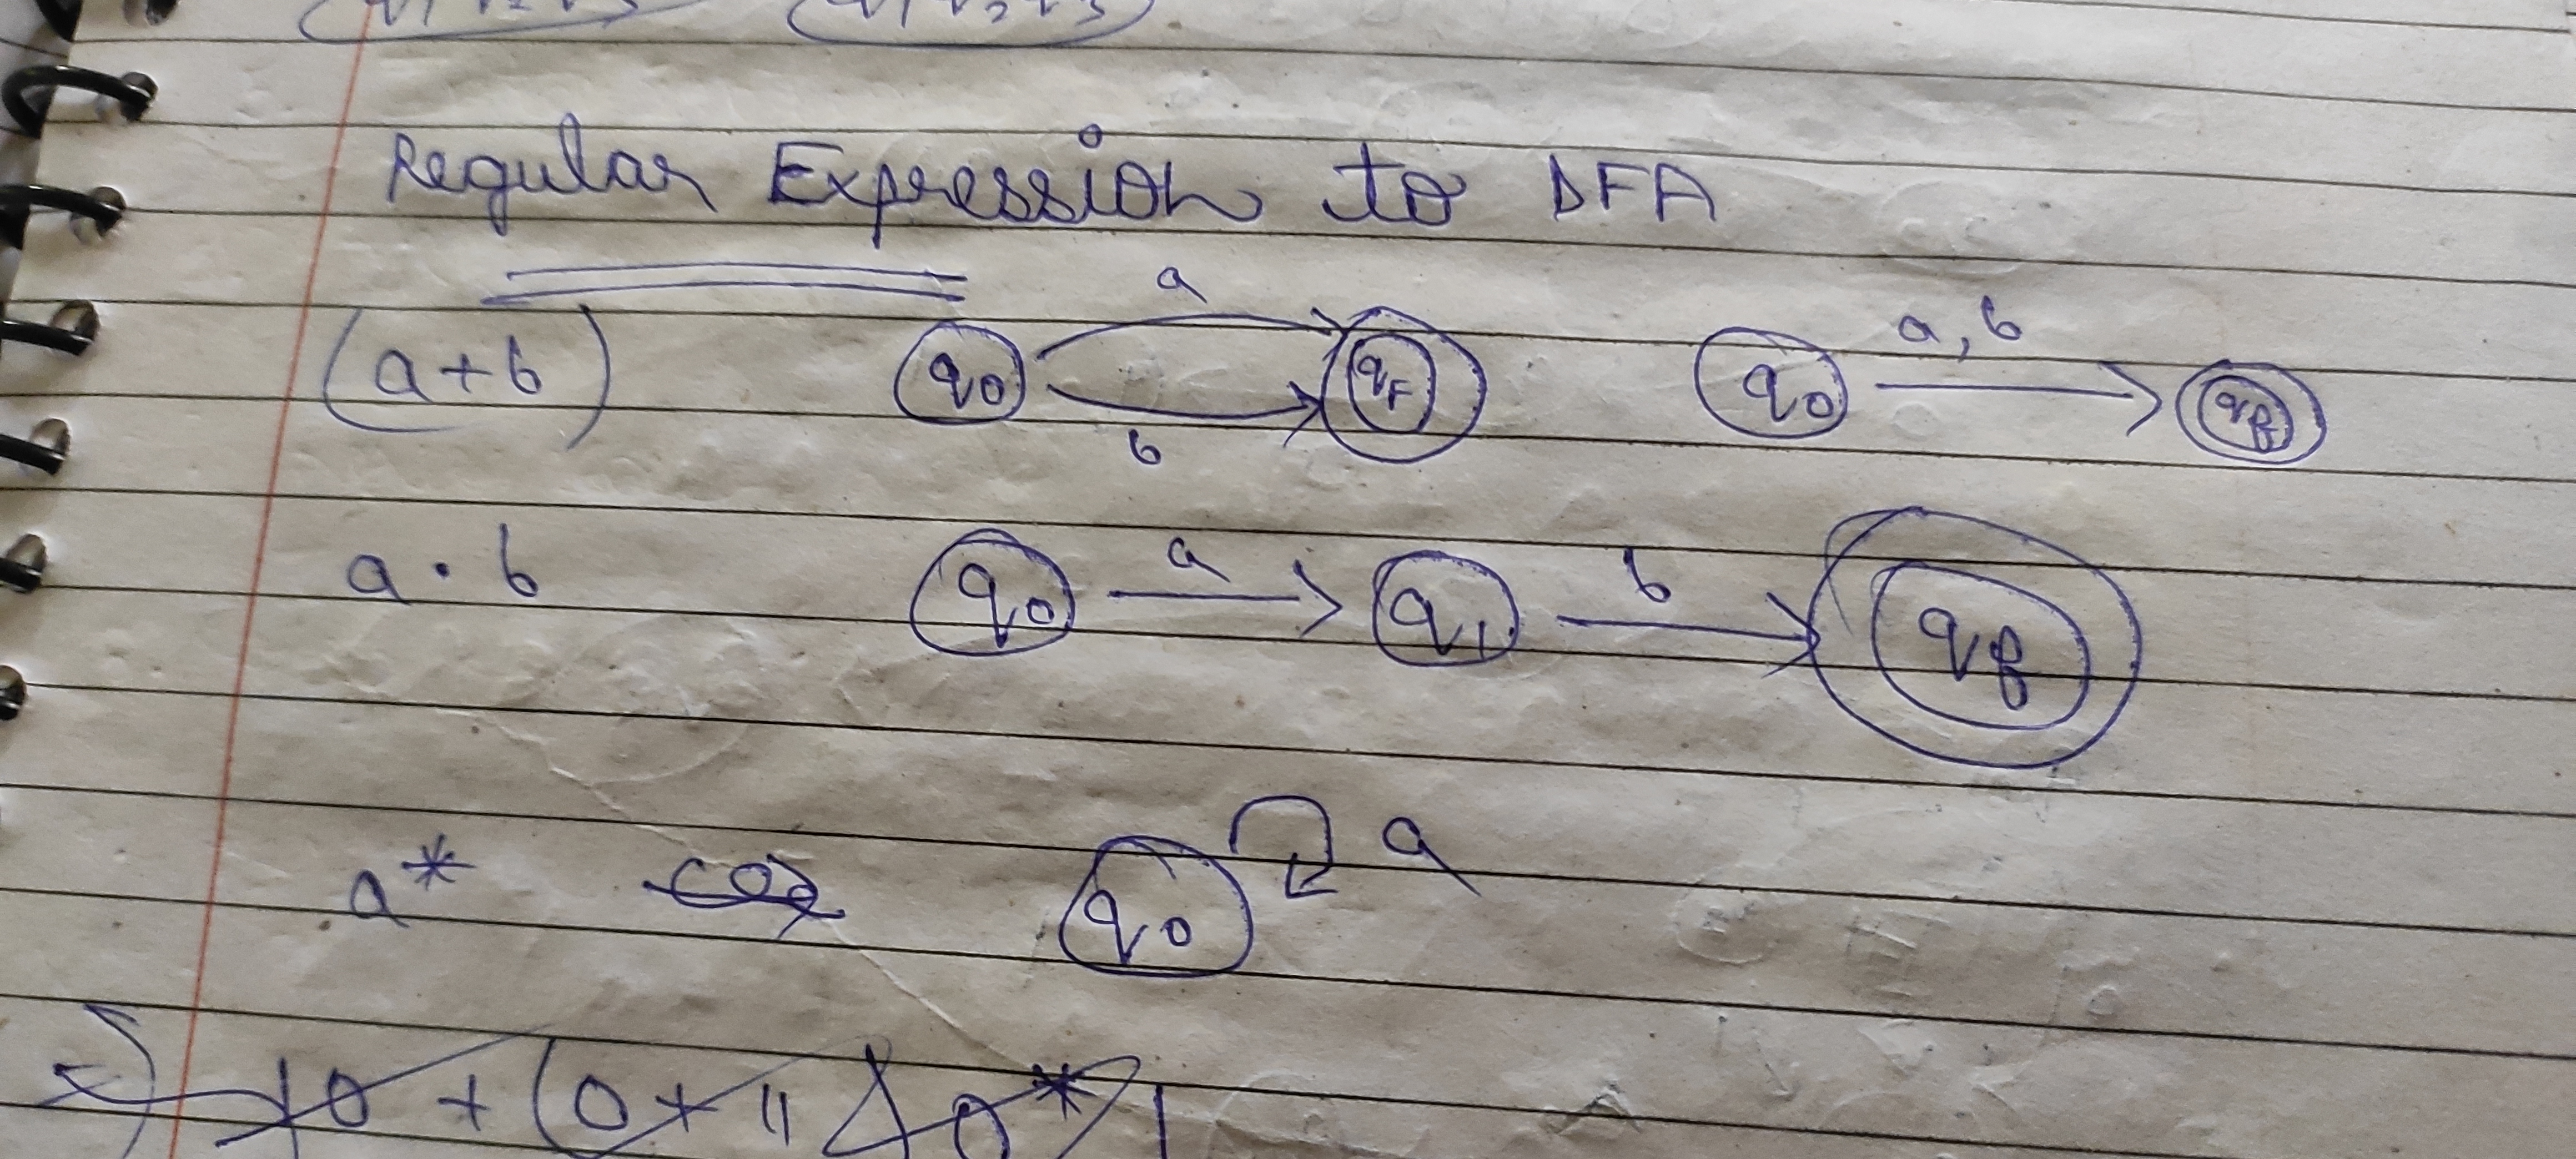 Regular Expression to DFA
(a+b) q0 a b qf q0 a,b qf
a·b q0 a q1 b qf
a* q0 a